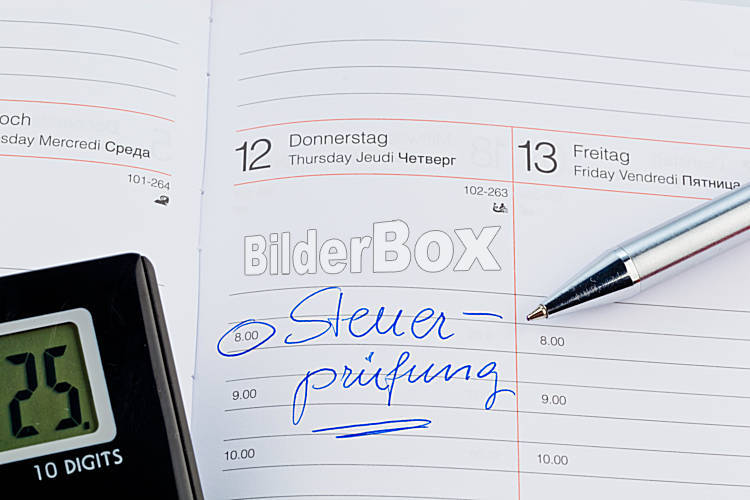 och
sday Mercredi Среда
101-264
12 Donnerstag
Thursday Jeudi Четверг
102-263
13 Freitag
Friday Vendredi Пятница
BilderBox
8.00 Steuer-
prüfung
9.00
10.00
8.00
9.00
10.00
25.
10 DIGITS